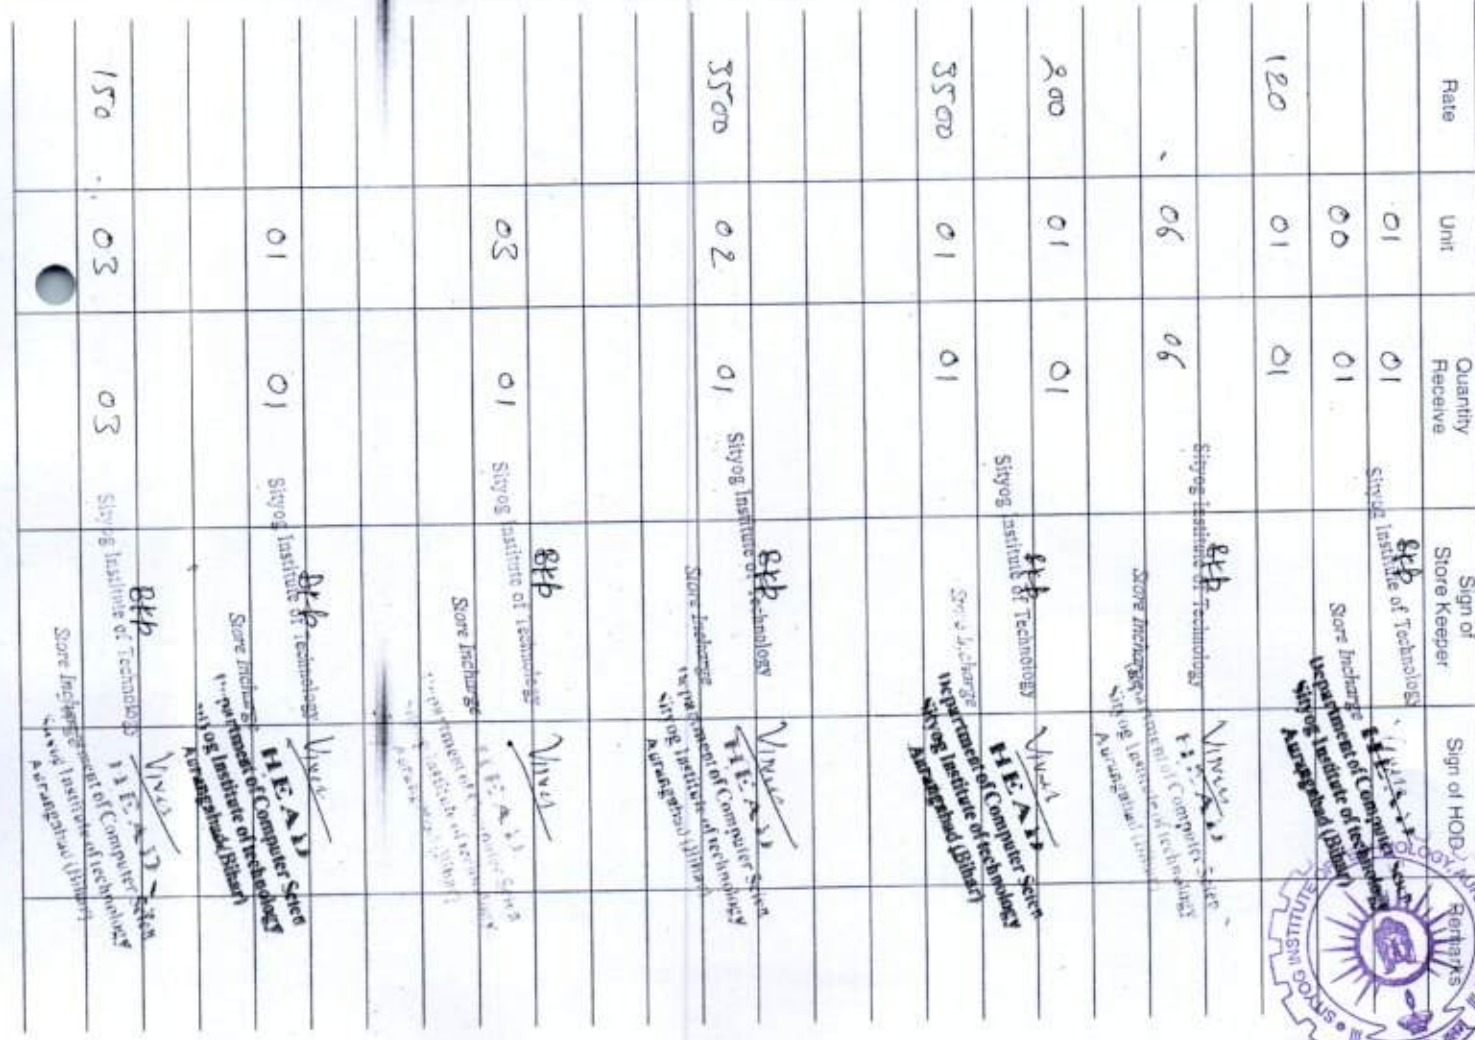 Rate Unit Quantity Receive Sign of Store Keeper Sign of HOD Remarks
01 01
Sityog Institute of Technology
00 01
Store Incharge
HEAD
Department of Computer Scien
Sityog Institute of technology
Aurangabad (Bihar)
120 01 01
06 06
Sityog Institute of Technology
Store Incharge
HEAD
Department of Computer Scien
Sityog Institute of technology
Aurangabad (Bihar)
200 01 01
Sityog Institute of Technology
Store Incharge
HEAD
Department of Computer Scien
Sityog Institute of technology
Aurangabad (Bihar)
3500 01 01
3500 02 01
Sityog Institute of Technology
Store Incharge
HEAD
Department of Computer Scien
Sityog Institute of technology
Aurangabad (Bihar)
03 01
Sityog Institute of Technology
Store Incharge
HEAD
Department of Computer Scien
Sityog Institute of technology
Aurangabad (Bihar)
01 01
Sityog Institute of Technology
Store Incharge
HEAD
Department of Computer Scien
Sityog Institute of technology
Aurangabad (Bihar)
150 03 03
Sityog Institute of Technology
Store Incharge
HEAD
Department of Computer Scien
Sityog Institute of technology
Aurangabad (Bihar)
SITYOG INSTITUTE OF TECHNOLOGY